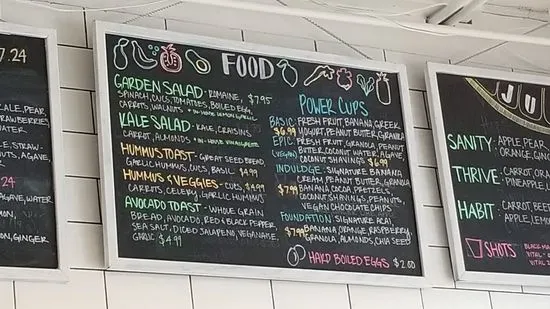 7.24
KALE, PEAR,
STRAWBERRIES,
WATER
STRAW-
NUTS, AGAVE,
24
AGAVE, WATER
ON, GINGER
FOOD
GARDEN SALAD - ROMAINE,
SPINACH, CUCS, TOMATOES, BOILED EGG, $7.95
CARROTS, WALNUTS
KALE SALAD - KALE, CRAISINS
CARROT, ALMONDS
HUMMUS TOAST - GREAT SEED BREAD,
GARLIC HUMMUS, CUCS, BASIL $4.99
HUMMUS & VEGGIES - CUCS $4.99
CARROTS, CELERY, GARLIC HUMMUS
AVOCADO TOAST - WHOLE GRAIN
BREAD, AVOCADO, RED & BLACK PEPPER,
SEA SALT, DICED JALAPENO, VEGANAISE,
GARLIC $4.99
POWER CUPS
BASIC: FRESH FRUIT, BANANA, GREEK
$6.99 YOGURT, PEANUT BUTTER, GRANOLA
EPIC: FRESH FRUIT, GRANOLA, PEANUT
(VEGAN) BUTTER, COCONUT WATER, AGAVE,
COCONUT SHAVINGS $6.99
INDULDGE: SIGNATURE BANANA
CREAM, PEANUT BUTTER, GRANOLA
$7.99 BANANA, COCOA, PRETZELS,
COCONUT SHAVINGS, PEANUTS,
VEGAN CHOCOLATE CHIPS
FOUNDATION: SIGNATURE ACAI,
$7.99 BANANA, ORANGE, RASPBERRY,
GRANOLA, ALMONDS, CHIA SEED
HARD BOILED EGGS $2.00
JU
SANITY: APPLE, PEAR
ORANGE, GING
THRIVE: CARROT,
PINEAPPLE,
HABIT: CARROT, BEE
APPLE, LEMO
SHOTS